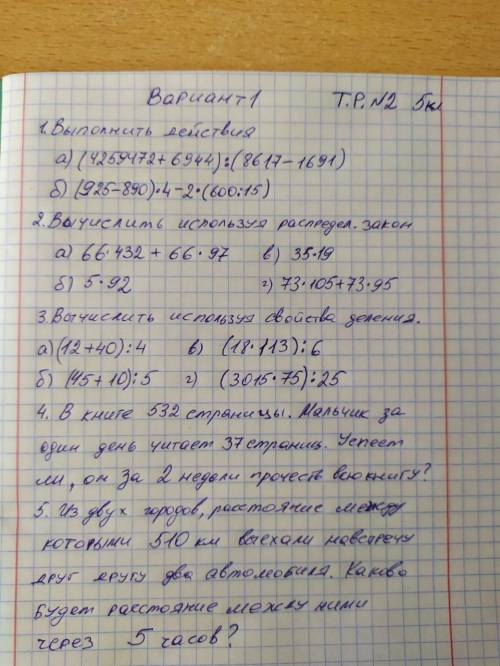 Вариант 1 Т.Р.N2 5кл
1. Выполнить действия
а) (4259472 + 6944) : (8617 - 1691)
б) (925-890)·4-2·(600:15)
2. Вычислить используя распредел. закон
а) 66·432 + 66·97 в) 35·19
б) 5·92 г) 73·105+73·95
3. Вычислить используя свойства деления.
а) (12+40):4 в) (18·113):6
б) (45+10):5 г) (3015·75):25
4. В книге 532 страницы. Мальчик за
один день читает 37 страниц. Успеет
ли, он за 2 недели прочесть всю книгу?
5. Из двух городов, расстояние между
которыми 510 км выехали навстречу
друг другу два автомобиля. Каково
будет расстояние между ними
через 5 часов?